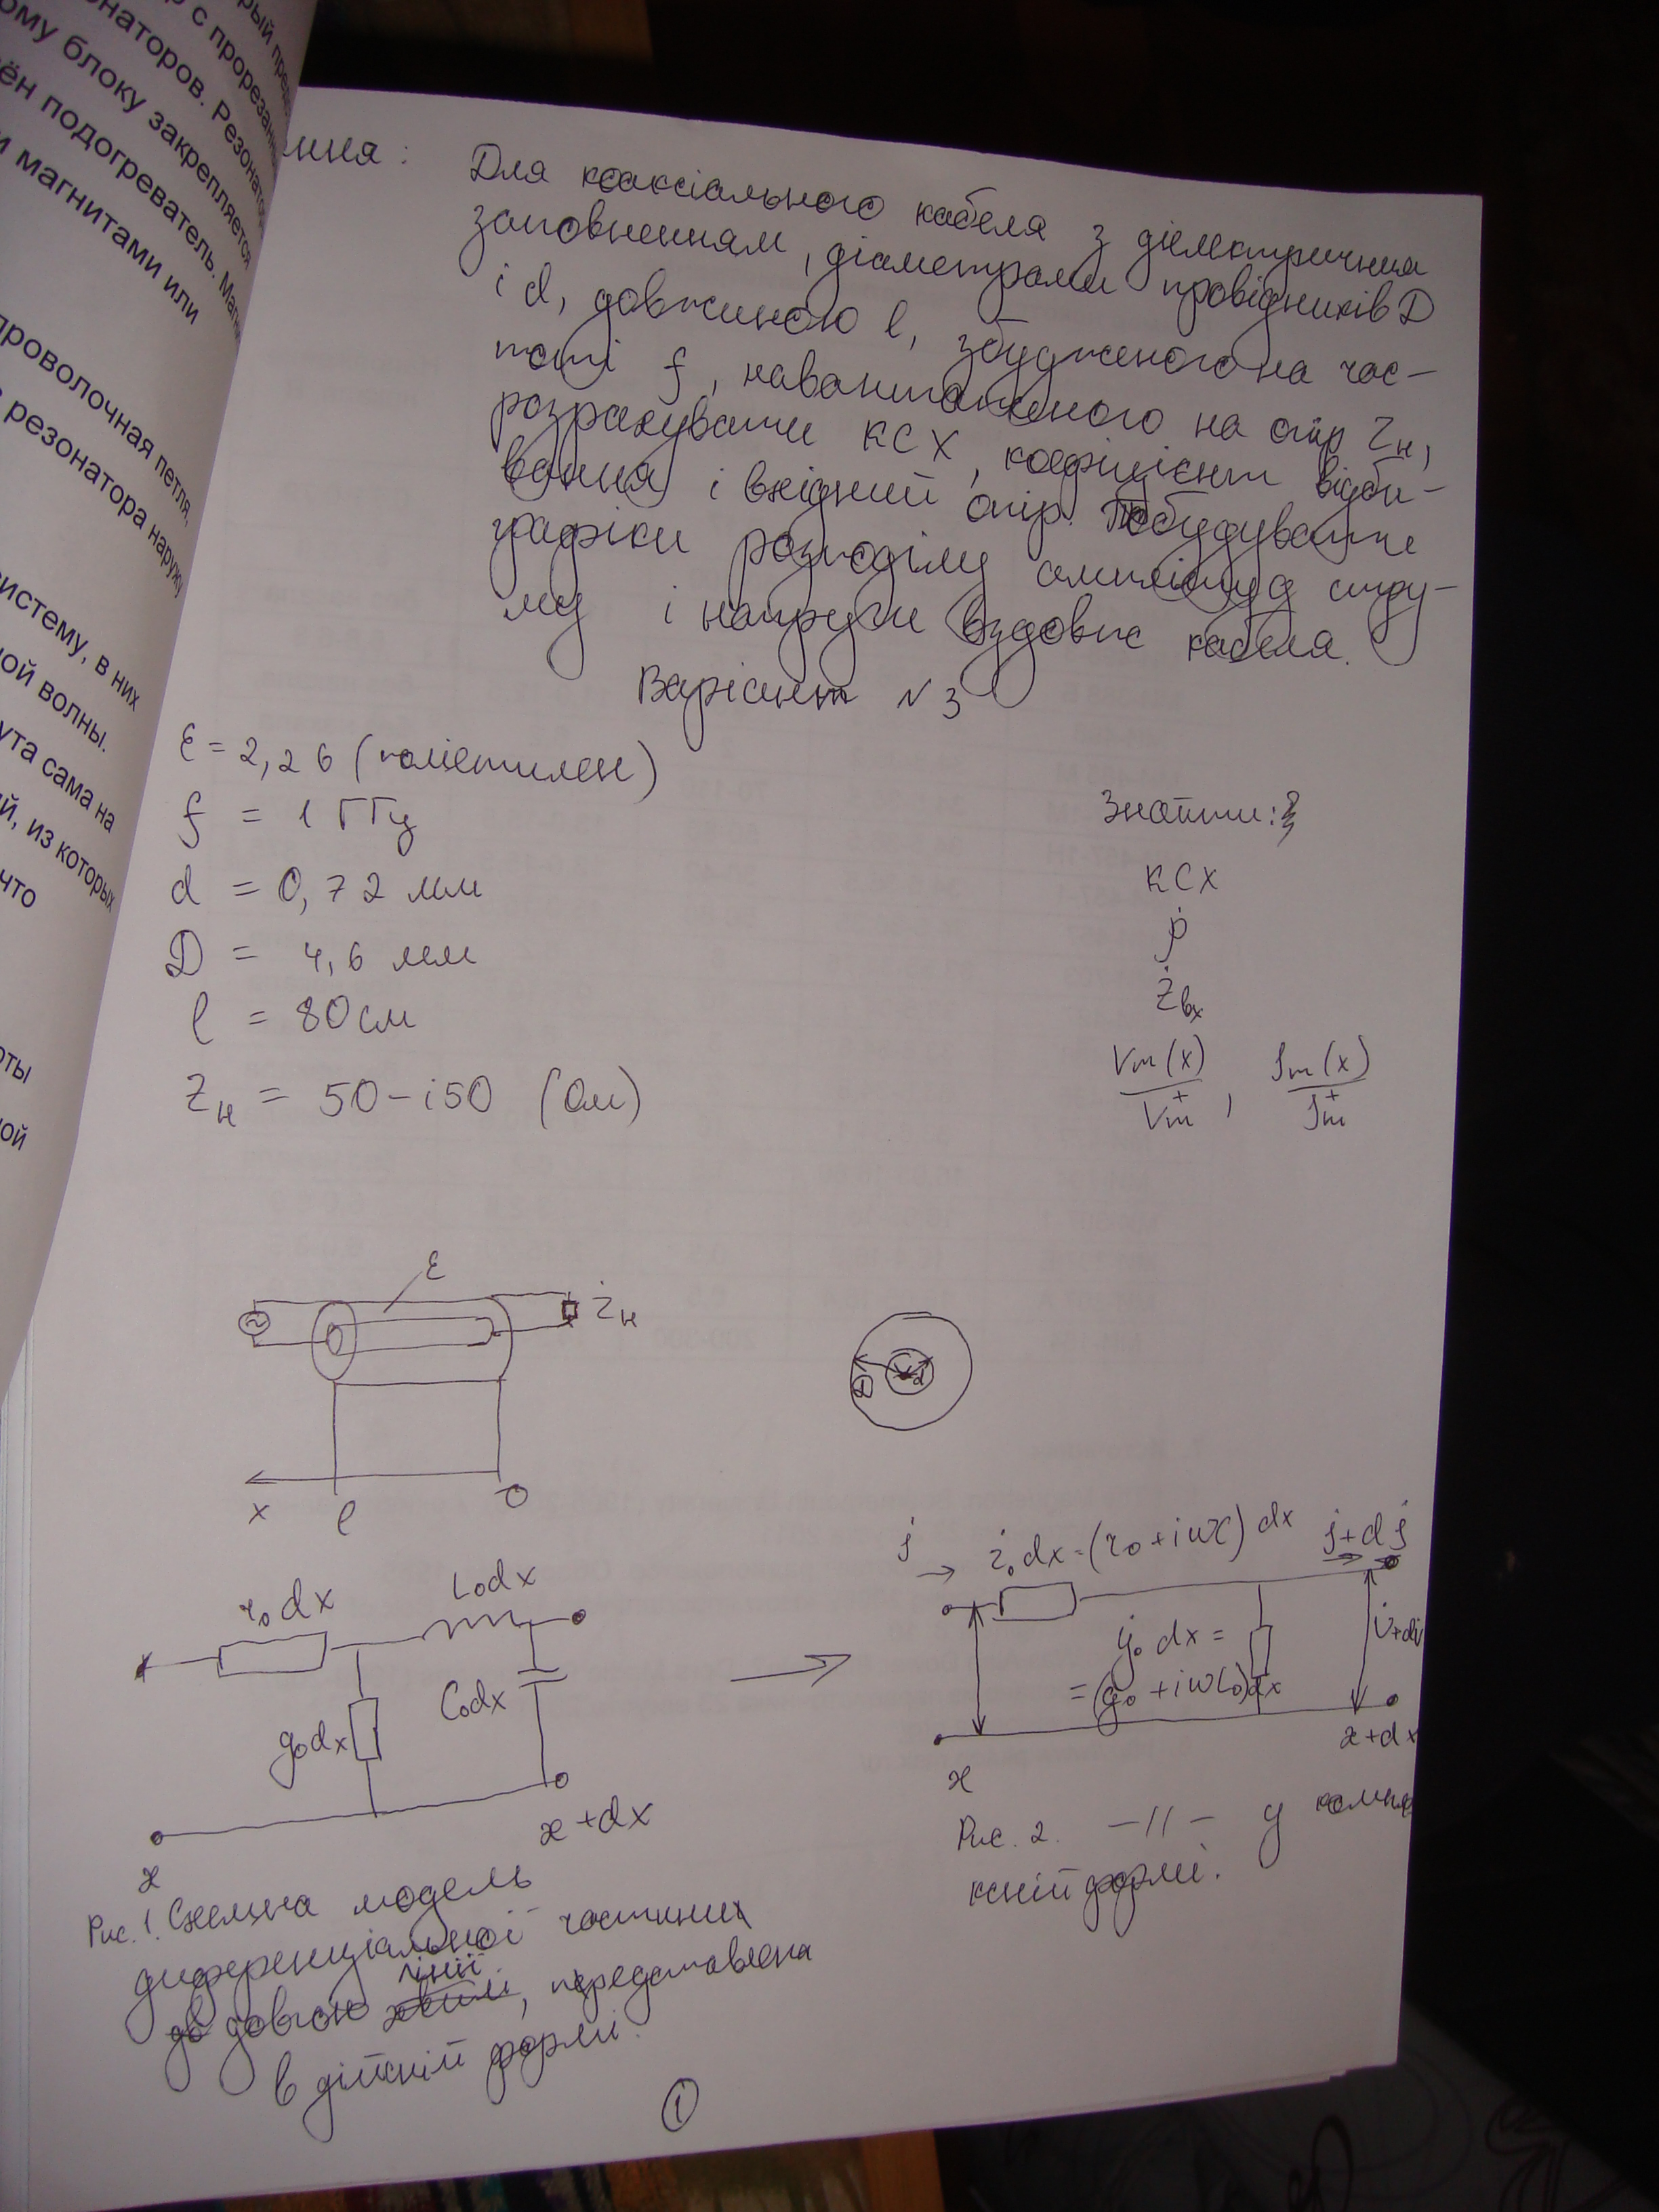 рый пред
р с прорезанн
онаторов. Резонатор
ому блоку закрепляется
ён подогреватель. Магн
и магнитами или
проволочная петля,
резонатора наружу
систему, в них
ной волны.
ута сама на
ый, из которых
что
оты
ной
ння :
Для коаксіального кабеля з діелектричним
заповненням, діаметрами провідників D
і d, довжиною l, збудженого на час-
тоті f, навантаженого на опір Zн,
розрахувати КСХ, коефіцієнт відби-
вання і вхідний опір. Побудувати
графіки розподілу амплітуд стру-
му і напруги вздовж кабеля.
Варіант №3
ε = 2,26 (поліетилен)
f = 1 ГГц
d = 0,72 мм
D = 4,6 мм
l = 80 см
Zн = 50 - i50 (Ом)
Знайти:
КСХ
ρ̇
Żвх
Vm(x)/Vm⁺ , Jm(x)/Jm⁺
ε
Żн
D d
x l 0
r₀dx L₀dx
g₀dx C₀dx
x x+dx
Рис. 1. Схемна модель
диференціальної частини
довгої лінії, представлена
в дійсній формі.
j → ż₀dx = (r₀+iωL) dx j+dj
ẏ₀ dx =
= (g₀ + iωC₀)dx
V̇+dV̇
x x+dx
Рис. 2. -//- у компле
ксній формі.
1